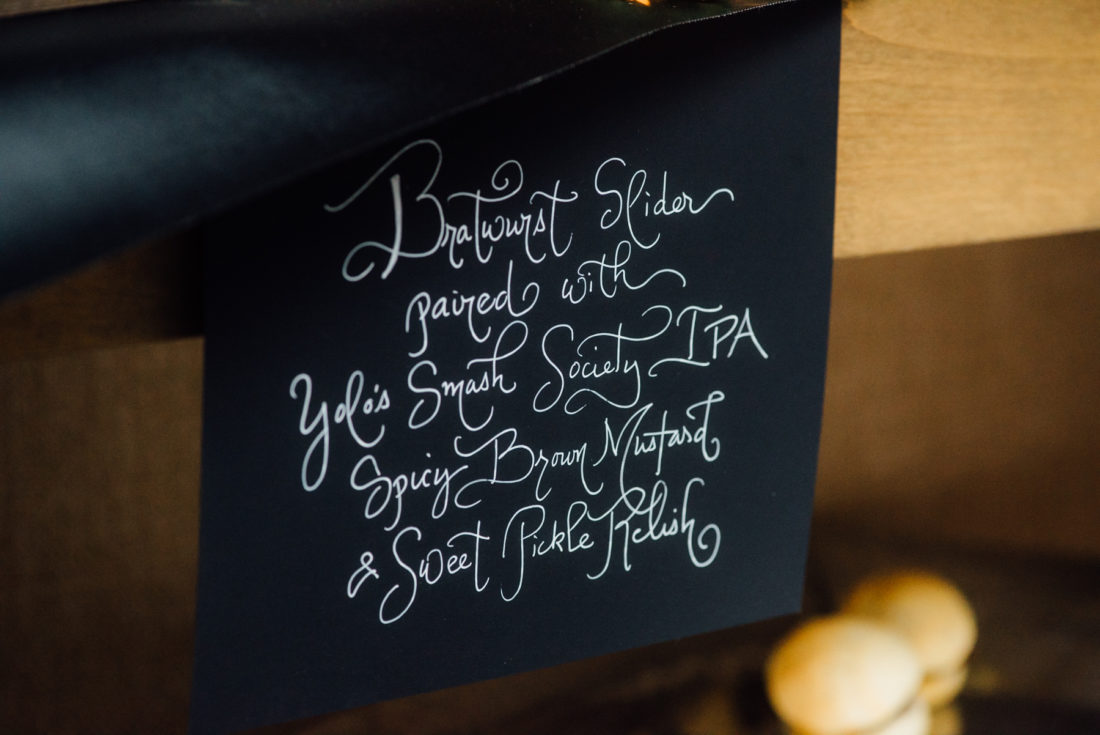 Bratwurst Slider
paired with
Yolo's Smash Society IPA
Spicy Brown Mustard
& Sweet Pickle Relish